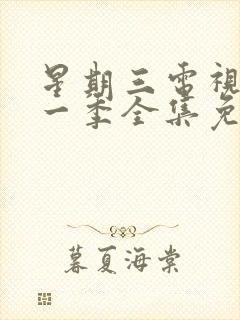 星期三電視
一季全集免
暮夏海棠